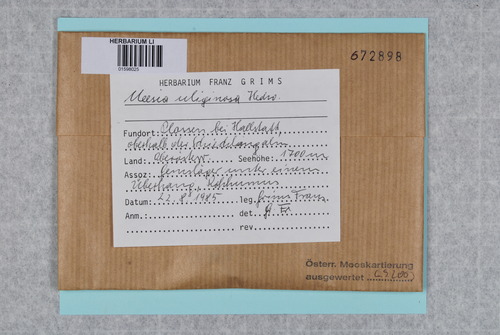 HERBARIUM LI
01598025
672898
HERBARIUM FRANZ GRIMS
Meesia uliginosa Hedw.
Fundort: Plassen bei Hallstatt,
oberhalb der
Land: Oberösterr. Seehöhe: 1700 m
Assoz: unter einem
Überhang, Kalkhumus
Datum: 22.8.1985 leg. Grims Franz
Anm.: det.
rev.
Österr. Mooskartierung
ausgewertet